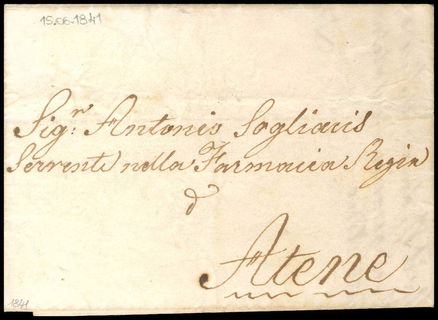 15.06.1841
Sigr. Antonio Sogliacis
Servente nella Farmacia Regia
d
Atene
1841